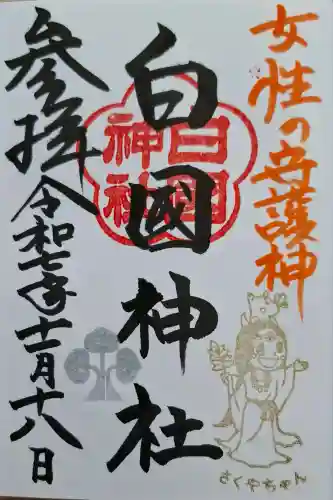 女性の守護神
白國神社
白國
神社
参拝
令和七年十一月十八日
さくやちゃん